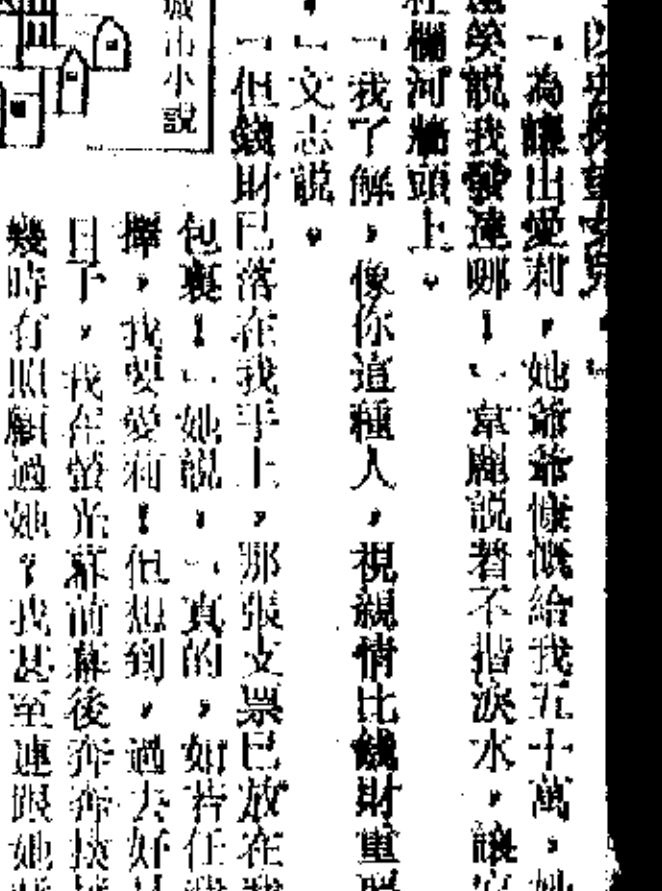 「為讓出愛莉，她爺爺慷慨給我五十萬，她
笑說我發達啊！」韋麗說着不揩淚水，讓
欄河牆頭上。
「我了解，像你這種人，視親情比錢財重
，」文志說。
「但錢財已落在我手上，那張支票已放在我
包裹！」她說：「真的，如若任我
擇，我要愛莉！但想到，過去好
目下，我在螢光幕前幕後奔奔
幾時有照顧過她？我甚至連跟她
城市小說